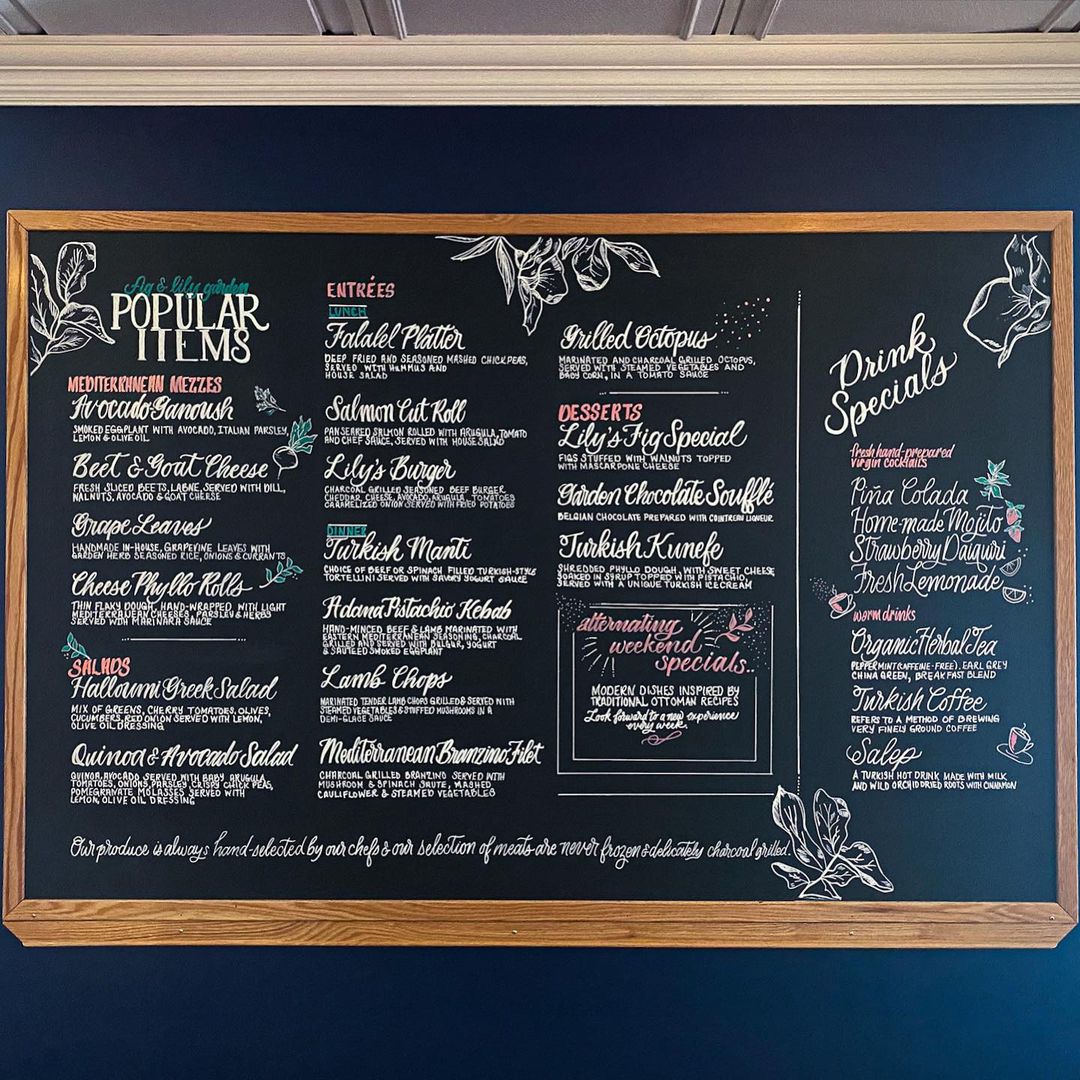 Fig & lily garden
POPULAR
ITEMS
MEDITERRANEAN MEZZES
Avocado Ganoush
SMOKED EGGPLANT WITH AVOCADO, ITALIAN PARSLEY,
LEMON & OLIVE OIL
Beet & Goat Cheese
FRESH SLICED BEETS, LABNE, SERVED WITH DILL,
WALNUTS, AVOCADO & GOAT CHEESE
Grape Leaves
HANDMADE IN-HOUSE, GRAPEVINE LEAVES WITH
GARDEN HERB SEASONED RICE, ONIONS & CURRANTS
Cheese Phyllo Rolls
THIN FLAKY DOUGH, HAND-WRAPPED, WITH LIGHT
MEDITERRANEAN CHEESES, PARSLEY & HERBS
SERVED WITH MARINARA SAUCE
SALADS
Halloumi Greek Salad
MIX OF GREENS, CHERRY TOMATOES, OLIVES,
CUCUMBERS, RED ONION SERVED WITH LEMON,
OLIVE OIL DRESSING
Quinoa & Avocado Salad
QUINOA, AVOCADO SERVED WITH BABY ARUGULA,
TOMATOES, ONIONS, PARSLEY, CRISPY CHICK PEAS,
POMEGRANATE MOLASSES SERVED WITH
LEMON, OLIVE OIL DRESSING
ENTRÉES
LUNCH
Falafel Platter
DEEP FRIED AND SEASONED MASHED CHICKPEAS,
SERVED WITH HUMMUS AND
HOUSE SALAD
Salmon Cut Roll
PAN SEARED SALMON ROLLED WITH ARUGULA, TOMATO
AND CHEF SAUCE, SERVED WITH HOUSE SALAD
Lily's Burger
CHARCOAL GRILLED SEASONED BEEF BURGER
CHEDDAR CHEESE, AVOCADO, ARUGULA, TOMATOES
CARAMELIZED ONION SERVED WITH FRIED POTATOES
DINNER
Turkish Manti
CHOICE OF BEEF OR SPINACH FILLED TURKISH-STYLE
TORTELLINI SERVED WITH SAVORY YOGURT SAUCE
Adana Pistachio Kebab
HAND-MINCED BEEF & LAMB MARINATED WITH
EASTERN MEDITERRANEAN SEASONING, CHARCOAL
GRILLED AND SERVED WITH BULGUR, YOGURT
& SAUTEED SMOKED EGGPLANT
Lamb Chops
MARINATED TENDER LAMB CHOPS GRILLED & SERVED WITH
STEAMED VEGETABLES & STUFFED MUSHROOMS IN A
DEMI-GLACE SAUCE
Mediterranean Branzino Filet
CHARCOAL GRILLED BRANZINO SERVED WITH
MUSHROOM & SPINACH SAUTE, MASHED
CAULIFLOWER & STEAMED VEGETABLES
Grilled Octopus
MARINATED AND CHARCOAL GRILLED OCTOPUS,
SERVED WITH STEAMED VEGETABLES AND
BABY CORN, IN A TOMATO SAUCE
DESSERTS
Lily's Fig Special
FIGS STUFFED WITH WALNUTS TOPPED
WITH MASCARPONE CHEESE
Garden Chocolate Soufflé
BELGIAN CHOCOLATE PREPARED WITH COINTREAU LIQUEUR
Turkish Kunefe
SHREDDED PHYLLO DOUGH, WITH SWEET CHEESE
SOAKED IN SYRUP TOPPED WITH PISTACHIO,
SERVED WITH A UNIQUE TURKISH ICECREAM
alternating
weekend
specials...
MODERN DISHES INSPIRED BY
TRADITIONAL OTTOMAN RECIPES
Look forward to a new experience
every week
Drink
Specials
fresh hand-prepared
virgin cocktails
Piña Colada
Home-made Mojito
Strawberry Daiquiri
Fresh Lemonade
warm drinks
Organic Herbal Tea
PEPPERMINT (CAFFEINE-FREE), EARL GREY
CHINA GREEN, BREAKFAST BLEND
Turkish Coffee
REFERS TO A METHOD OF BREWING
VERY FINELY GROUND COFFEE
Salep
A TURKISH HOT DRINK MADE WITH MILK
AND WILD ORCHID DRIED ROOTS WITH CINNAMON
Our produce is always hand-selected by our chefs & our selection of meats are never frozen & delicately charcoal grilled.